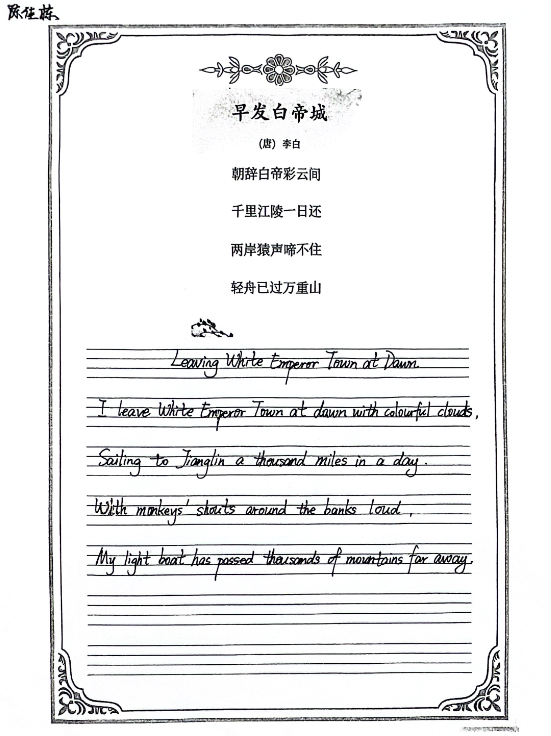 早发白帝城
（唐）李白
朝辞白帝彩云间
千里江陵一日还
两岸猿声啼不住
轻舟已过万重山
Leaving White Emperor Town at Dawn.
I leave White Emperor Town at dawn with colourful clouds,
Sailing to Jianglin a thousand miles in a day.
With monkeys' shouts around the banks loud,
My light boat has passed thousands of mountains far away.